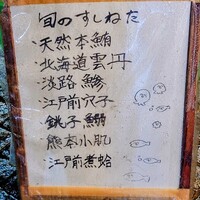 旬のすしねた
天然本鮪
北海道雲丹
淡路鯵
江戸前穴子
銚子鰯
熊本小肌
江戸前煮蛤